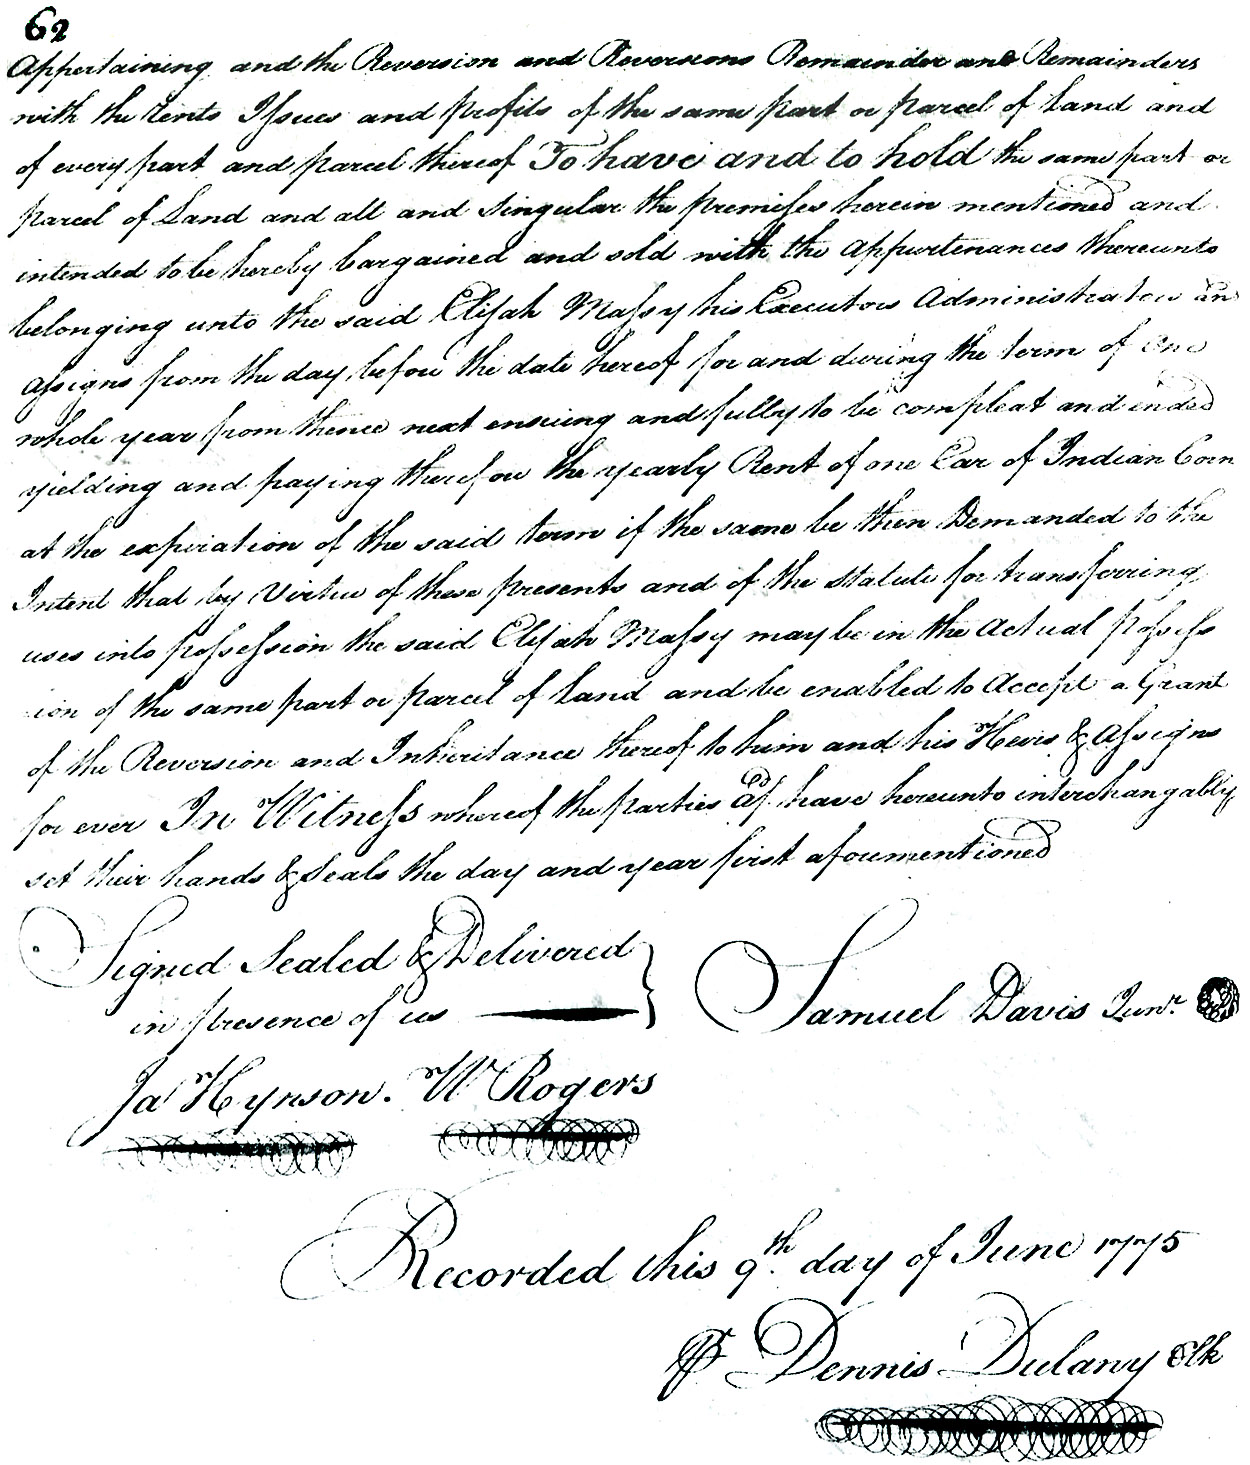 62
Appertaining and the Reversion and Reversions Remainder and Remainders
with the rents Issues and profits of the same part or parcel of Land and
of every part and parcel thereof To have and to hold the same part or
parcel of Land and all and singular the premises herein mentioned and
intended to be hereby bargained and sold with the appurtenances thereunto
belonging unto the said Elijah Massy his Executors Administrators an
assigns from the day before the date hereof for and during the term of one
whole year from thence next ensuing and fully to be compleat and ended
yielding and paying therefore the yearly Rent of one Ear of Indian Corn
at the expiration of the said term if the same be then Demanded to the
Intent that by Virtue of these presents and of the statute for transferring
uses into possession the said Elijah Massy may be in the actual possess
ion of the same part or parcel of Land and be enabled to accept a Grant
of the Reversion and Inheritance thereof to him and his Heirs & assigns
for ever In Witness whereof the parties afsd. have hereunto interchangably
set their hands & Seals the day and year first aforementioned
Signed Sealed & Delivered
in presence of us
Samuel Davis Junr.
Ja Hynson. W Rogers
Recorded this 9th. day of June 1775
P Dennis Dulany Clk